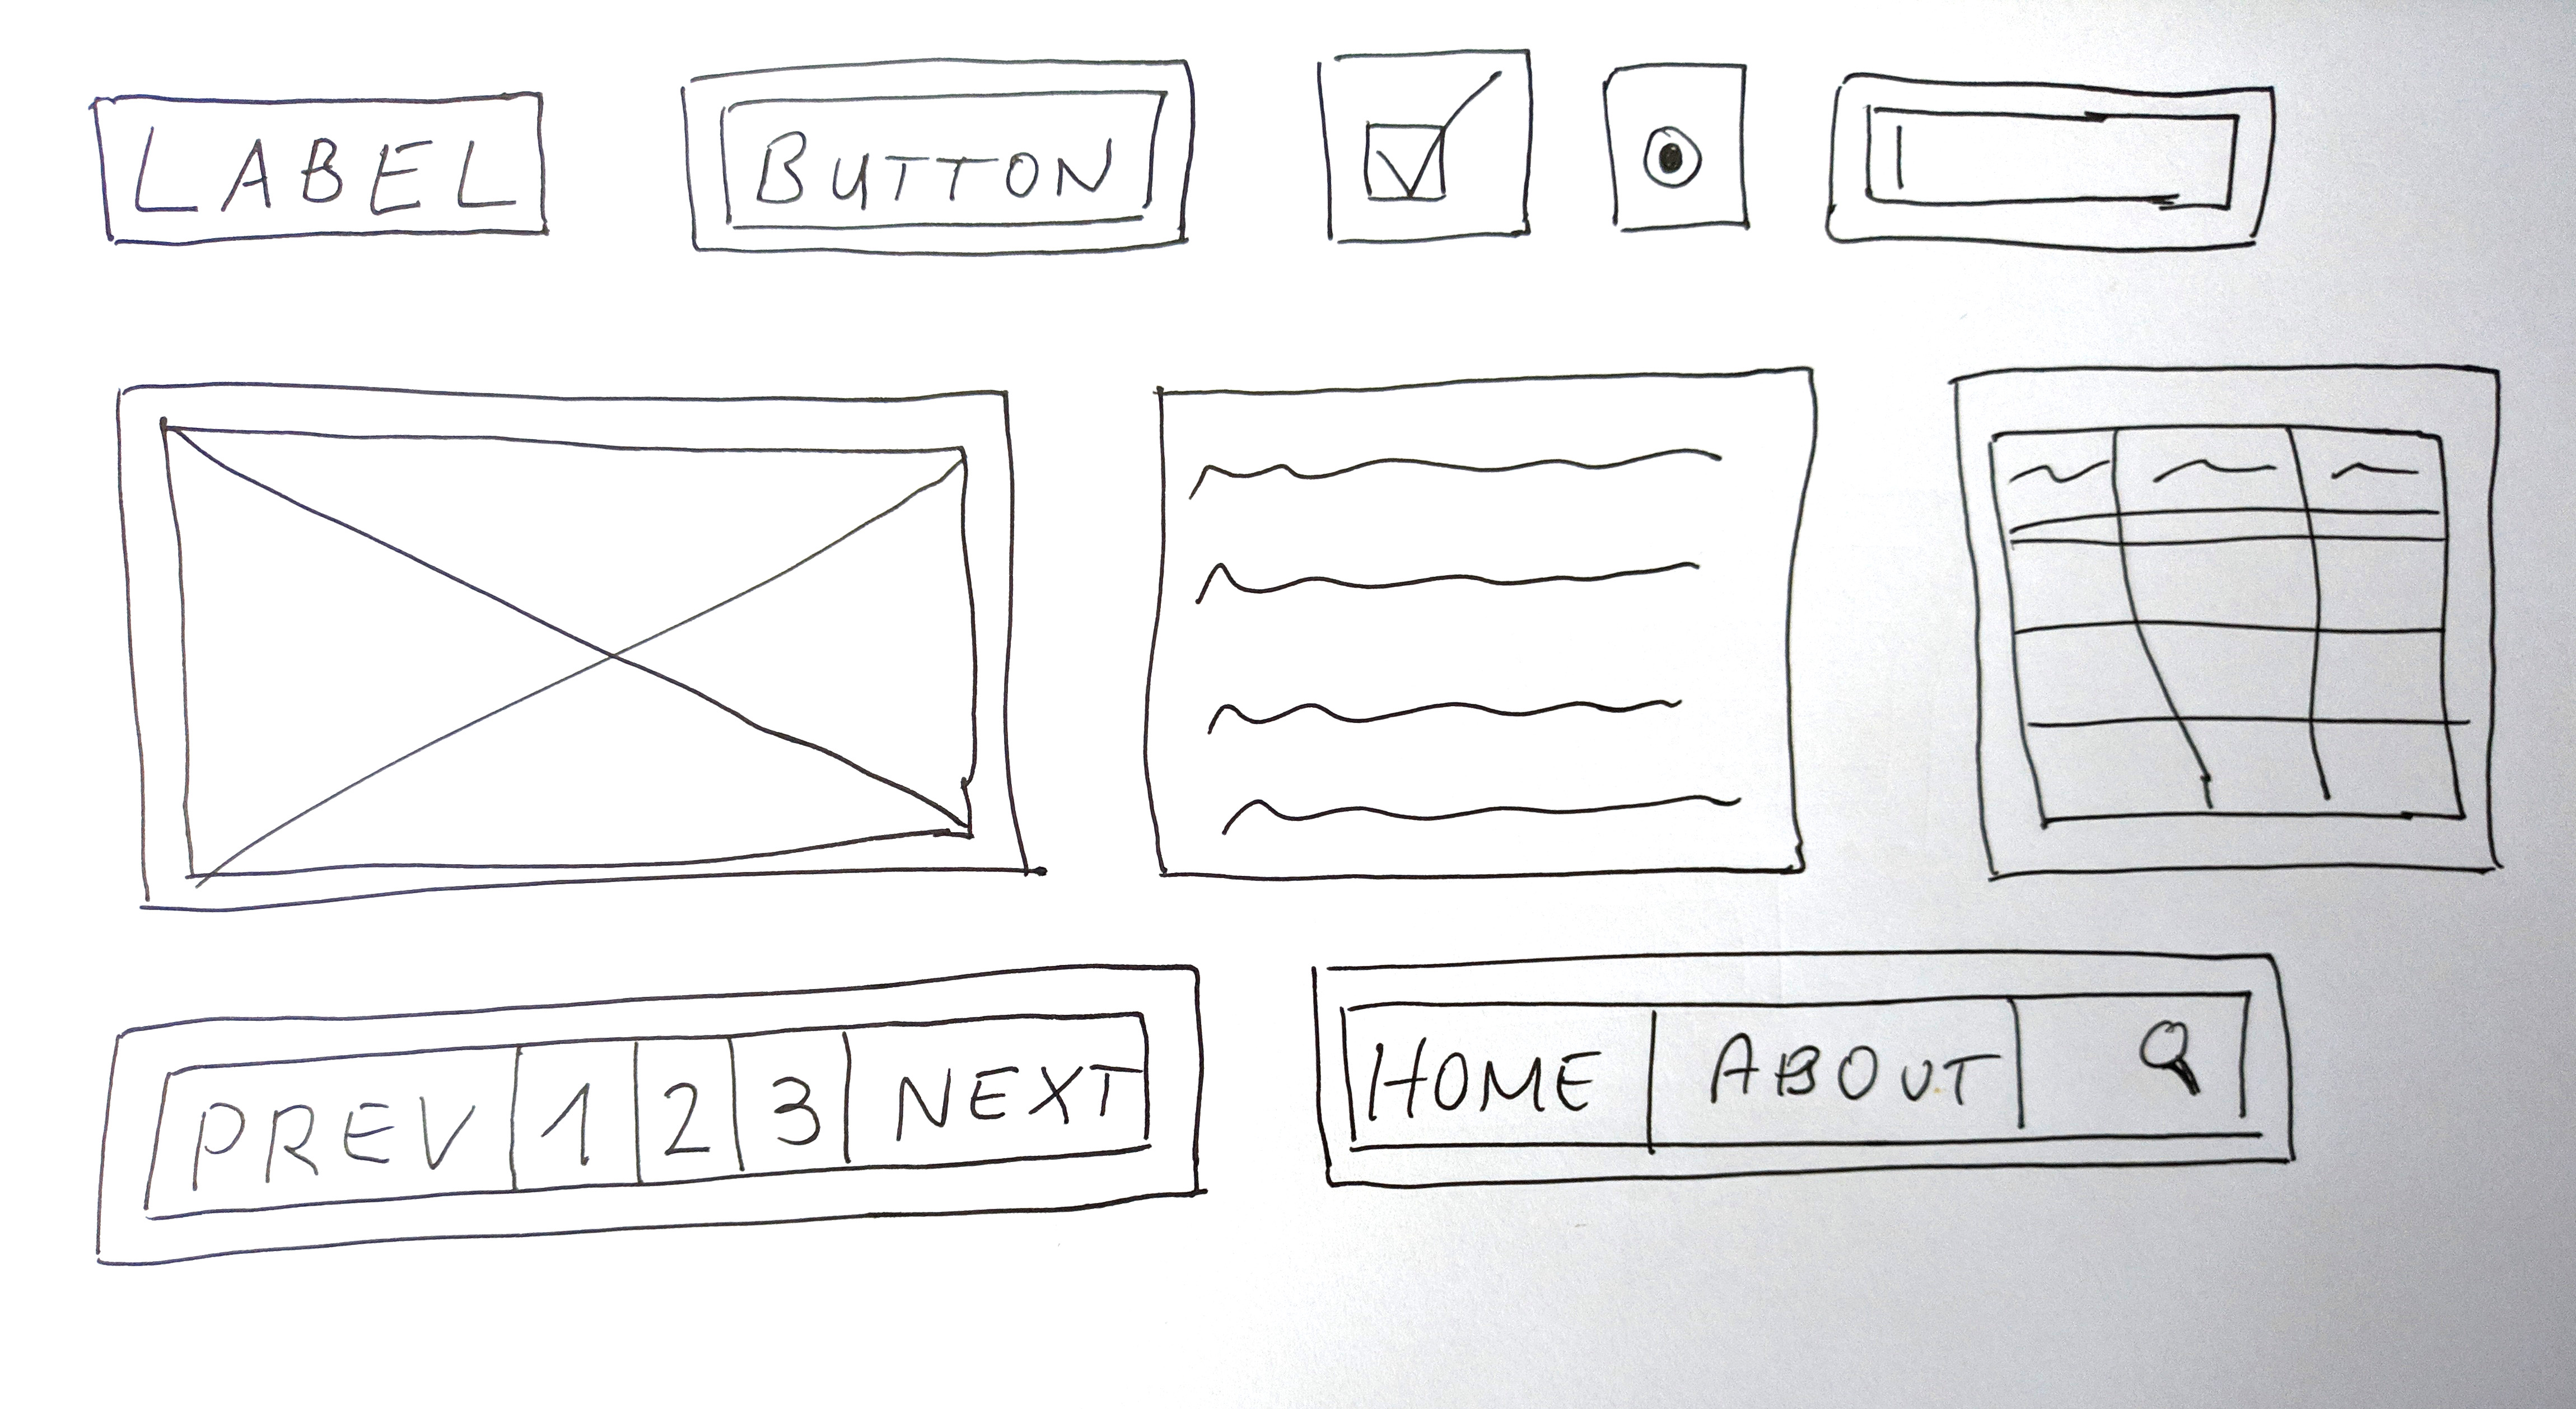 LABEL BUTTON
PREV 1 2 3 NEXT HOME ABOUT